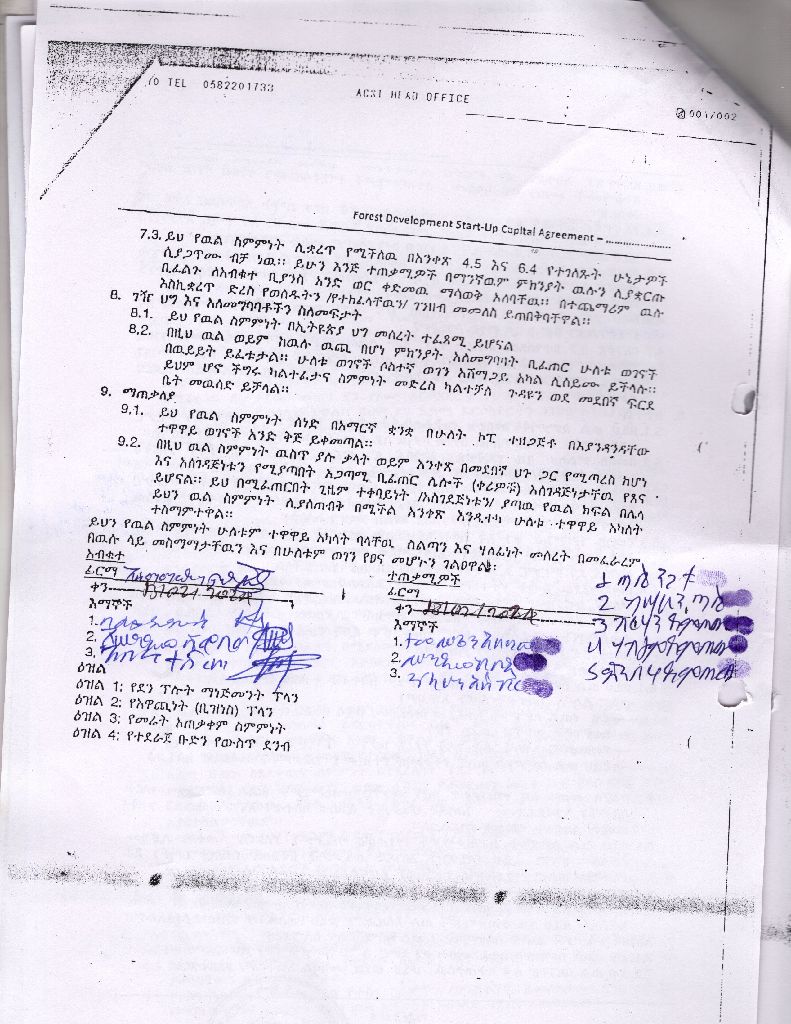 /O TEL 0582201733 ACSI HEAD OFFICE 001/002
Forest Development Start-Up Capital Agreement – ........................
7.3. ይህ የዉል ስምምነት ሊቋረጥ የሚችለዉ በአንቀጽ 4.5 እና 6.4 የተገለጹት ሁኔታዎች
ሲያጋጥሙ ብቻ ነዉ፡፡ ይሁን እንጅ ተጠቃሚዎች በማንኛዉም ምክንያት ዉሉን ሲያቋርጡ
ቢፈልጉ ለአብቁተ ቢያንስ አንድ ወር ቀድመዉ ማሳወቅ አለባቸዉ፡፡ በተጨማሪም ዉሉ
እስኪቋረጥ ድረስ የወሰዱትን /የተከፈላቸዉን/ ገንዘብ መመለስ ይጠበቅባቸዋል፡፡
8. ገዥ ህግ እና አለመግባባቶችን ስለመፍታት
8.1. ይህ የዉል ስምምነት በኢትዮጵያ ህግ መሰረት ተፈጻሚ ይሆናል
8.2. በዚህ ዉል ወይም ከዉሉ ዉጪ በሆነ ምክንያት አለመግባባት ቢፈጠር ሁለቱ ወገኖች
በዉይይት ይፈቱታል፡፡ ሁለቱ ወገኖች ሶስተኛ ወገን አሸማጋይ አካል ሊሰይሙ ይችላሉ፡፡
ይህም ሆኖ ችግሩ ካልተፈታና ስምምነት መድረስ ካልተቻለ ጉዳዩን ወደ መደበኛ ፍርድ
ቤት መዉሰድ ይቻላል፡፡
9. ማጠቃለያ
9.1. ይህ የዉል ስምምነት ሰነድ በአማርኛ ቋንቋ በሁለት ኮፒ ተዘጋጅቶ በእያንዳንዳቸው
ተዋዋይ ወገኖች አንድ ቅጅ ይቀመጣል፡፡
9.2. በዚህ ዉል ስምምነት ዉስጥ ያሉ ቃላት ወይም አንቀጽ በመደበኛ ህጉ ጋር የሚጣረስ ከሆነ
እና አስገዳጅነቱን የሚያጣበት አጋጣሚ ቢፈጠር ሌሎች (ቀሪዎቹ) አስገዳጅነታቸዉ የጸና
ይሆናል፡፡ ይህ በሚፈጠርበት ጊዜም ተቀባይነት /አስገደጅነቱን/ ያጣዉ የዉል ክፍል በሌላ
ይህን ዉል ስምምነት ሊያስጠብቅ በሚችል አንቀጽ እንዲተካ ሁለቱ ተዋዋይ አካላት
ተስማምተዋል፡፡
ይህን የዉል ስምምነት ሁለቱም ተዋዋይ አካላት ባላቸዉ ስልጣን እና ሃለፊነት መሰረት በመፈራረም
በዉሉ ላይ መስማማታቸዉን እና በሁለቱም ወገን የፀና መሆኑን ገልፀዋል፡፡
አብቁተ ተጠቃሚዎች
ፊርማ ፊርማ
ቀን ቀን
እማኞች እማኞች
1. 1.
2. 2.
3. 3.
ዕዝል
ዕዝል 1: የደን ፕሎት ማነጅመንት ፕላን
ዕዝል 2: የአዋጪነት (ቢዝነስ) ፕላን
ዕዝል 3: የመሬት አጠቃቀም ስምምነት
ዕዝል 4: የተደራጀ ቡድን የውስጥ ደንብ